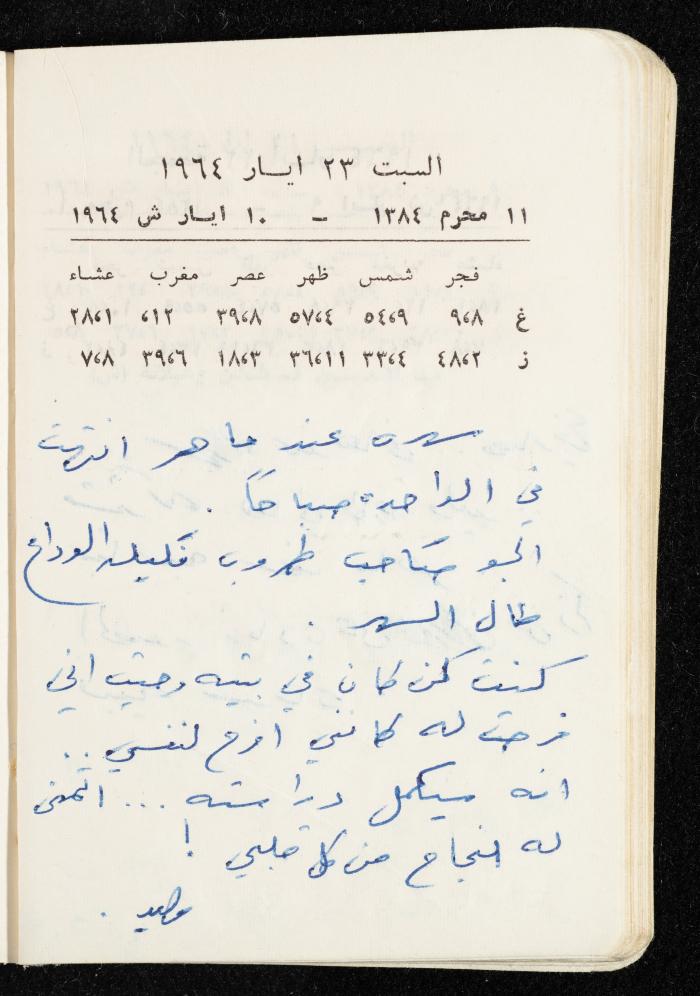 السبت ٢٣ ايار ١٩٦٤
١١ محرم ١٣٨٤ – ١٠ ايار ش ١٩٦٤
فجر شمس ظهر عصر مغرب عشاء
غ ٩،٨ ٥٤،٩ ٥٧،٤ ٣٩،٨ ،١٢ ٢٨،١
ز ٤٨،٢ ٣٣،٤ ٣٦،١١ ١٨،٣ ٣٩،٦ ٧،٨
سهره عند ماهر انتهت
في الواحدة صباحاً .
الجو صاحب طروب فليلة الوداع
طال السهر .
كنت كمن كان في بيته وحيث اني
فرحت له كانني افرح لنفسي ..
انه سيكمل دراسته ... اتمنى
له النجاح من كل قلبي !
وليد .